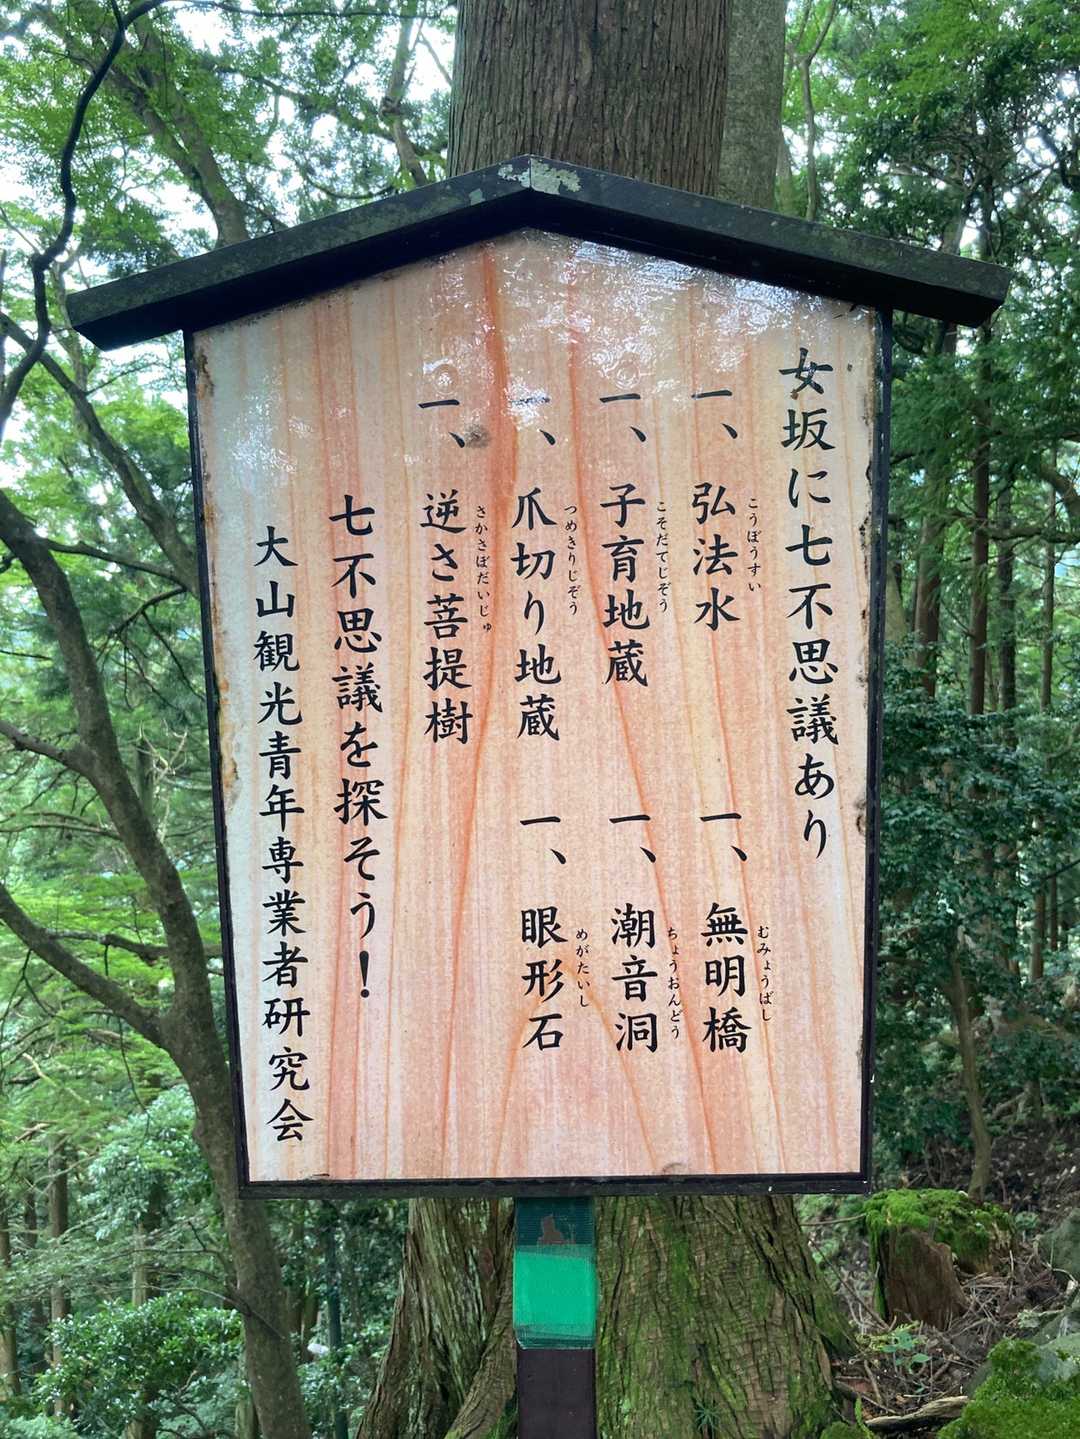 女坂に七不思議あり
一、弘法水
こうぼうすい
一、無明橋
むみょうばし
一、子育地蔵
こそだてじぞう
一、潮音洞
ちょうおんどう
一、爪切り地蔵
つめきりじぞう
一、眼形石
めがたいし
一、逆さ菩提樹
さかさぼだいじゅ
七不思議を探そう！
大山観光青年専業者研究会